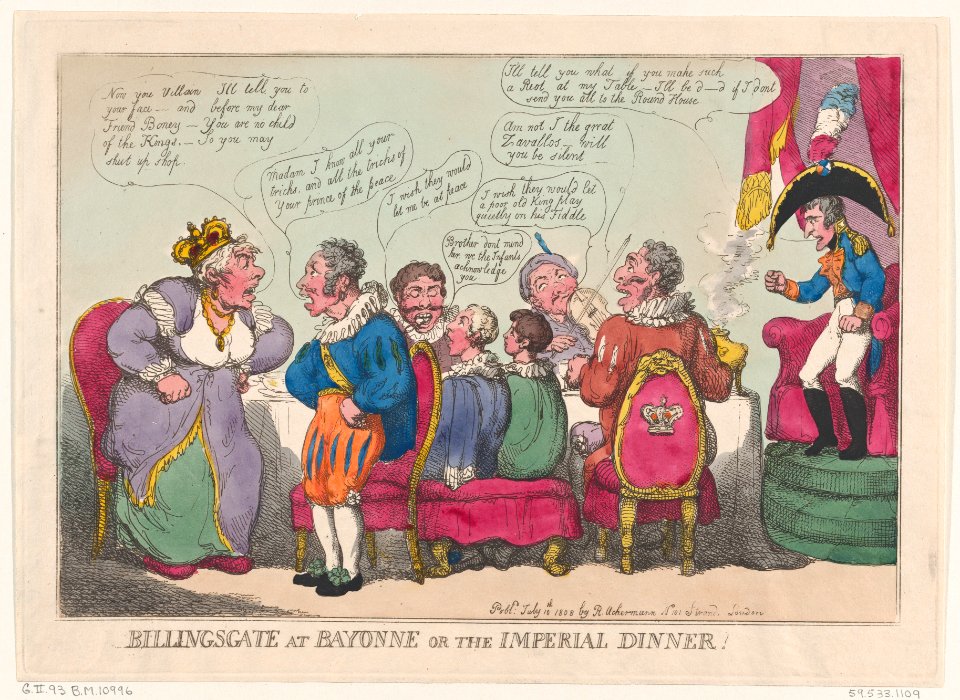 Now you Villain I'll tell you to
your face — and before my dear
Friend Boney — You are no child
of the Kings. — So you may
shut up shop.
Madam I know all your
tricks, and all the tricks of
Your prince of the peace
I wish they would
let me be at peace
Brother dont mind
her we the Infants
acknowledge
you
I wish they would let
a poor old King play
quietly on his Fiddle
Am not I the great
Zavallos. will
you be silent
I'll tell you what if you make such
a Riot at my Table — I'll be d—d if I dont
send you all to the Round House
Publ. July 10th 1808 by R. Ackermann No 101 Strand. London
BILLINGSGATE AT BAYONNE OR THE IMPERIAL DINNER!
G.II.93 B.M.10996
59.533.1109